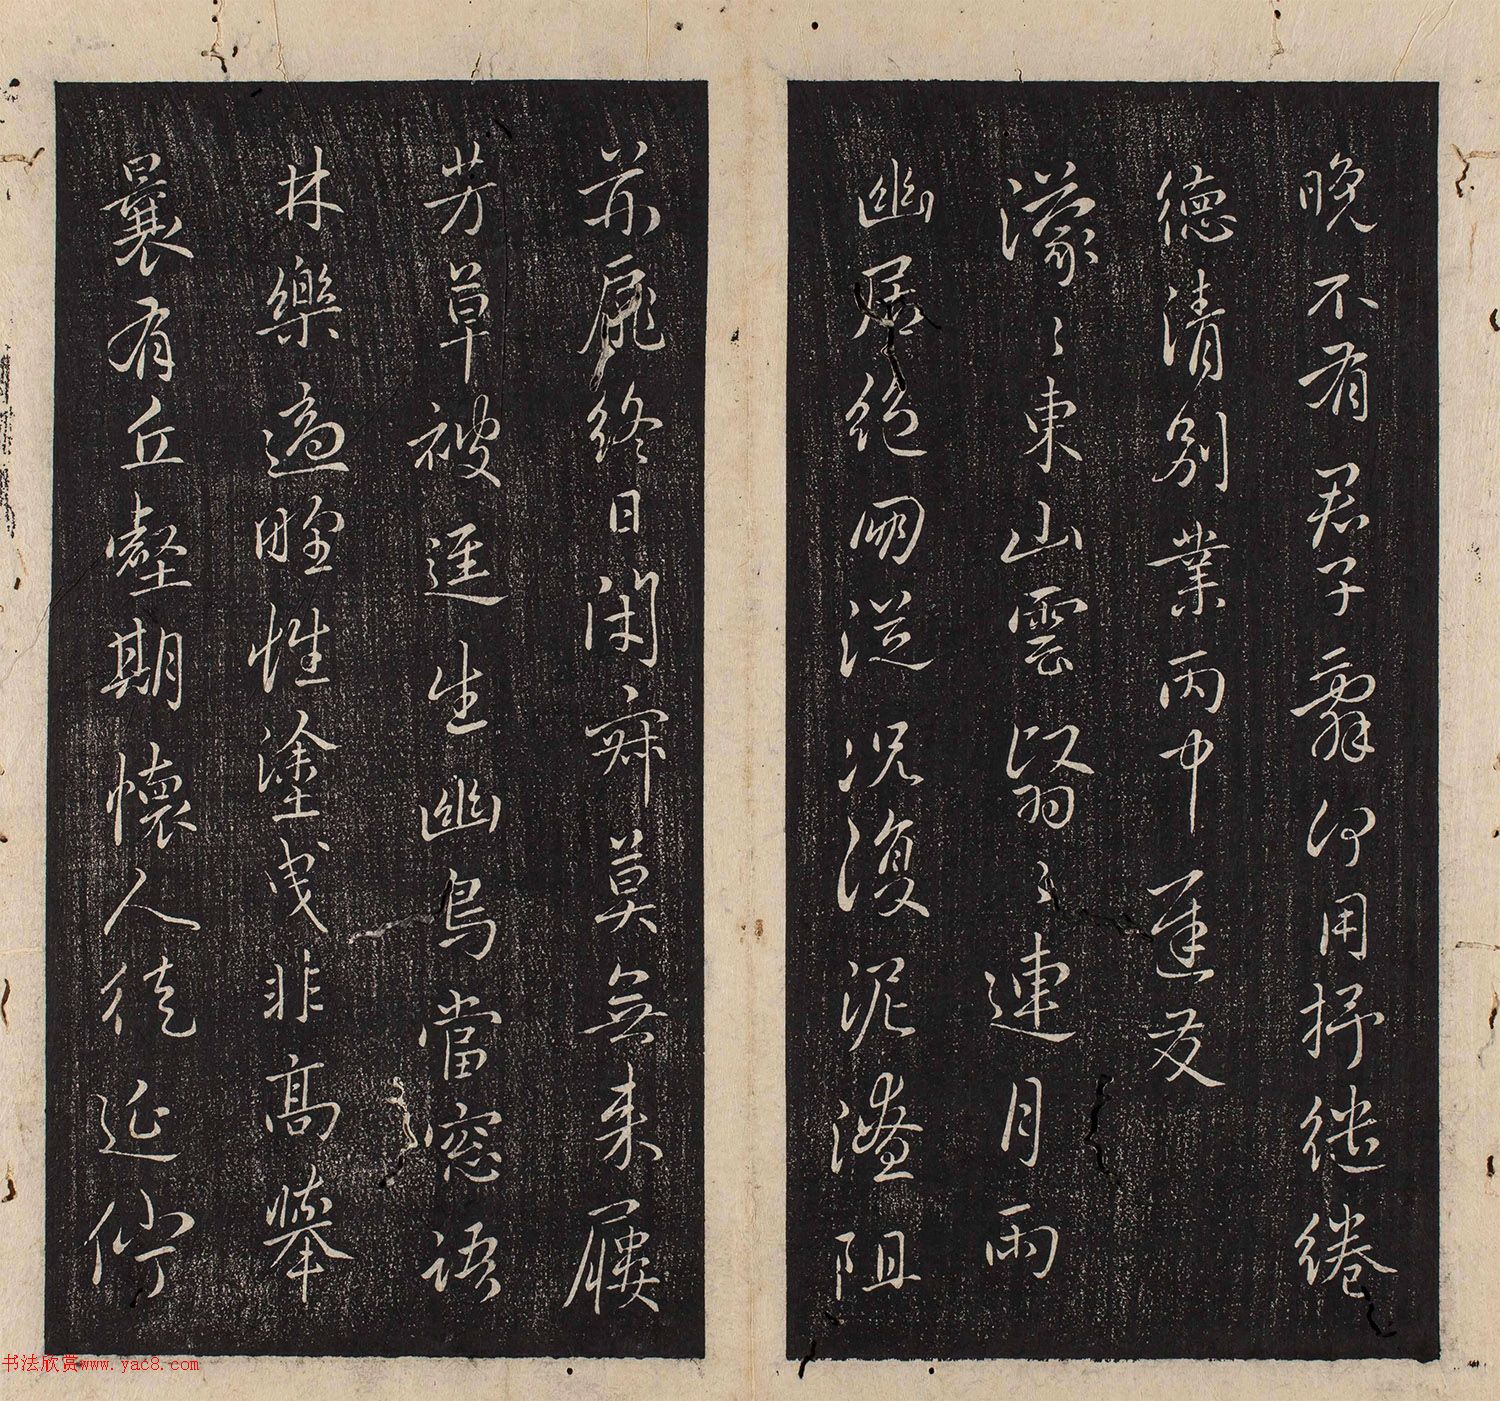 晚不有君子辭何用抒繾綣
德清別業雨中遲友
濛〻東山雲翳〻連月雨
幽居絕朋從況復泥阻
扉終日閑寂莫無來屨
芳草被逕生幽鳥當窓語
林樂適野性塗曳非高舉
曩有丘壑期懷人徒延佇
书法欣赏www.yac8.com